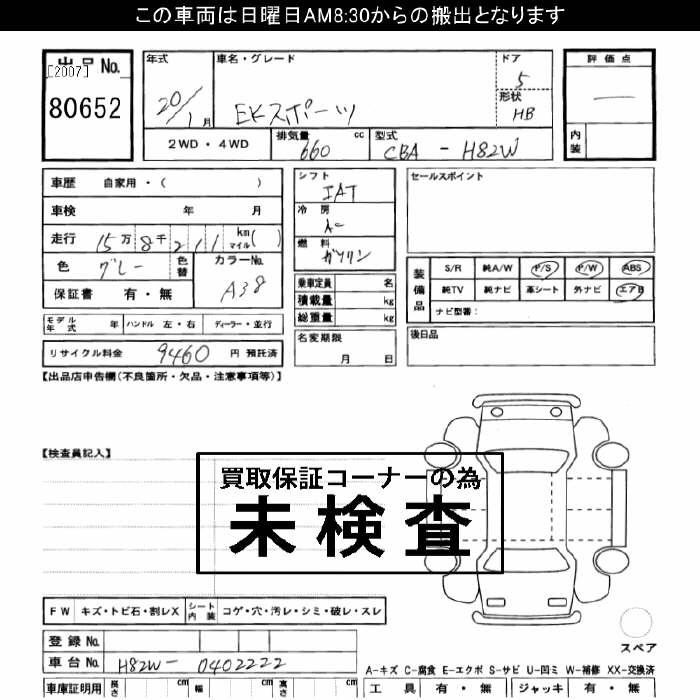 この車両は日曜日AM8:30からの搬出となります
出品No.
[2007]
80652
年式
20/1月
車名・グレード
EKスポーツ
ドア
5
形状
HB
評価点
―
内装
2WD・4WD
排気量
660 cc
型式
CBA - H82W
車歴 自家用・( )
車検 年 月
走行 15万8千211 km マイル( )
色 グレー 色替 カラーNo. A38
保証書 有・無
シフト
IAT
冷房
燃料
ガソリン
乗車定員 名
積載量 kg
総重量 kg
セールスポイント
装備品
S/R 純A/W P/S P/W ABS
純TV 純ナビ 革シート 外ナビ エアB
ナビ型番:
モデル年式 年 ハンドル 左・右 ディーラー・並行
リサイクル料金 9460 円 預託済
名変期限
月 日
後日品
【出品店申告欄(不良箇所・欠品・注意事項等)】
【検査員記入】
買取保証コーナーの為
未検査
FW キズ・トビ石・割レX シート内装 コゲ・穴・汚レ・シミ・破レ・スレ
登録No.
車台No. H82W- 0402222
スペア
A-キズ C-腐食 E-エクボ S-サビ U-凹ミ W-補修 XX-交換済
車庫証明用 長さ cm 幅 cm 高さ cm
工具 有・無 ジャッキ 有・無